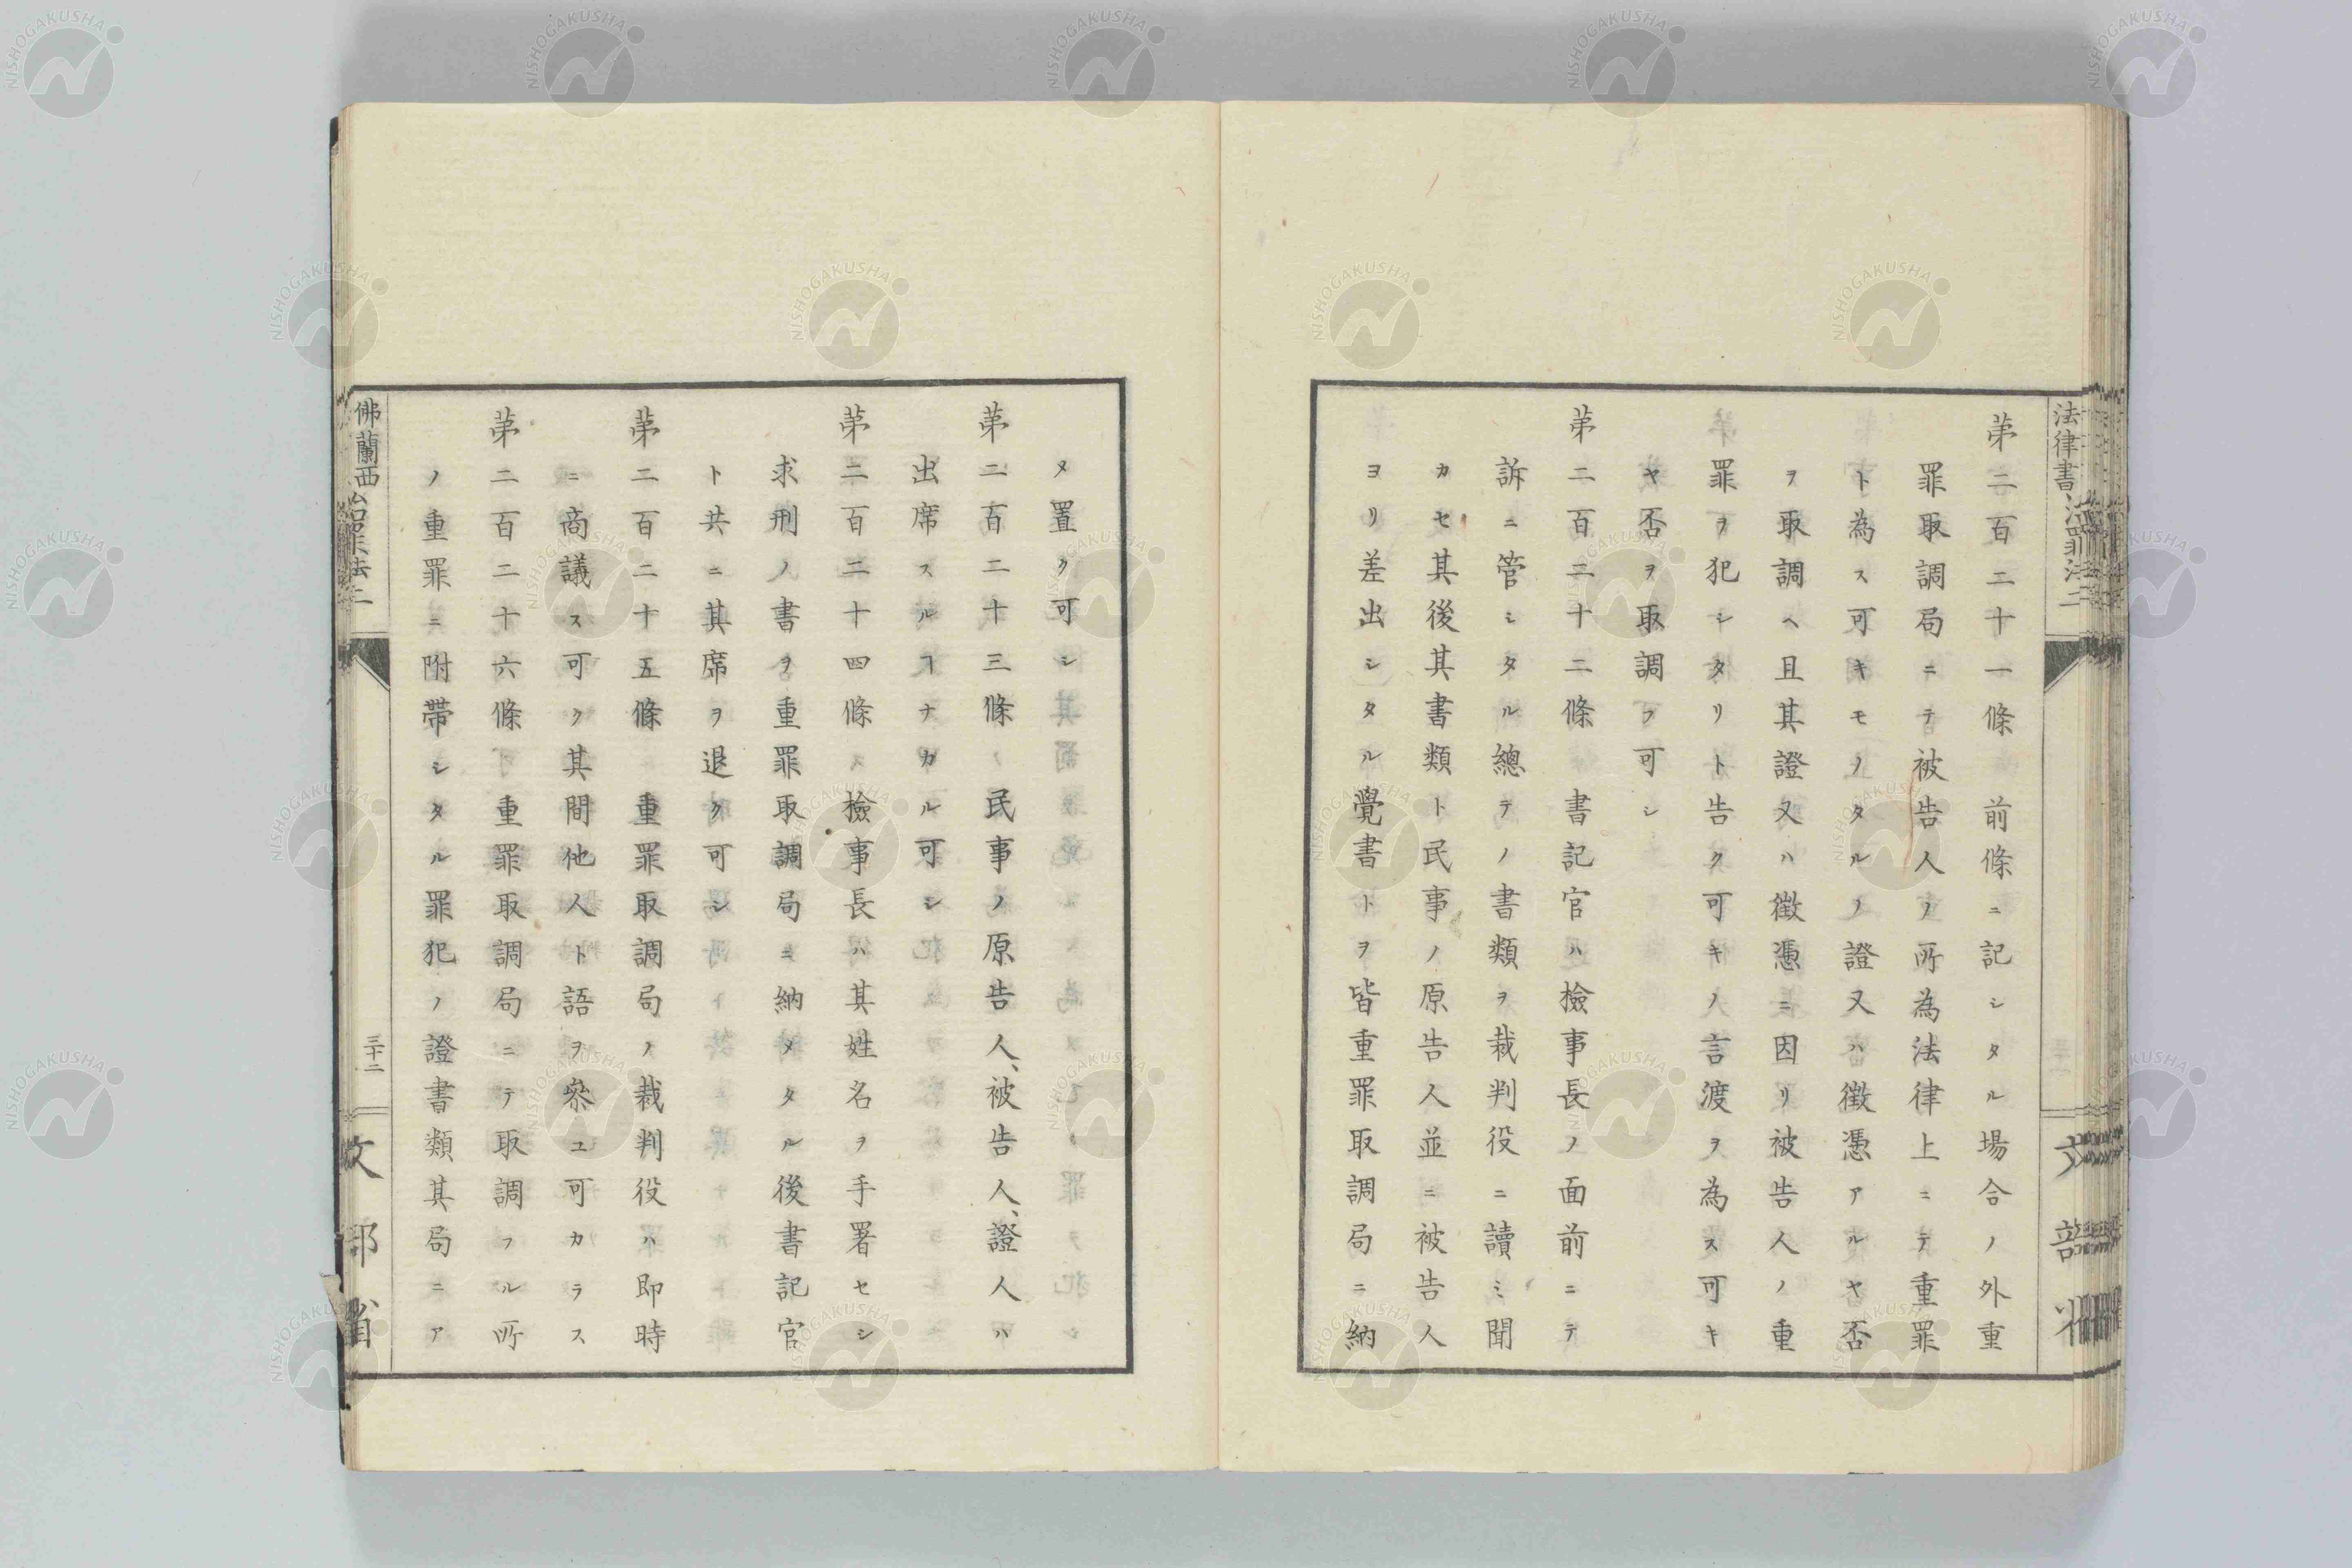 第二百二十一條 前條ニ記シタル場合ノ外重
罪取調局ニテ被告人ノ所為法律上ニテ重罪
ト為ス可キモノタルノ證又ハ徴憑アルヤ否
ヲ取調ヘ且其證又ハ徴憑ニ因リ被告人ノ重
罪ヲ犯シタリト告ク可キノ言渡ヲ為ス可キ
ヤ否ヲ取調フ可シ
第二百二十二條 書記官ハ檢事長ノ面前ニテ
訴ニ管シタル總テノ書類ヲ裁判役ニ讀ミ聞
カセ其後其書類ト民事ノ原告人並ニ被告人
ヨリ差出シタル覺書トヲ皆重罪取調局ニ納
メ置ク可シ
第二百二十三條 民事ノ原告人、被告人、證人ハ
出席スルヿナカル可シ
第二百二十四條 檢事長ハ其姓名ヲ手署セシ
求刑ノ書ヲ重罪取調局ニ納メタル後書記官
ト共ニ其席ヲ退ク可シ
第二百二十五條 重罪取調局ノ裁判役ハ即時
ニ商議ス可ク其間他人ト語ヲ參ユ可カラス
第二百二十六條 重罪取調局ニテ取調フル所
ノ重罪ニ附帶シタル罪犯ノ證書類其局ニア
佛蘭西治罪法二
三十二
文部省
NISHOGAKUSHA